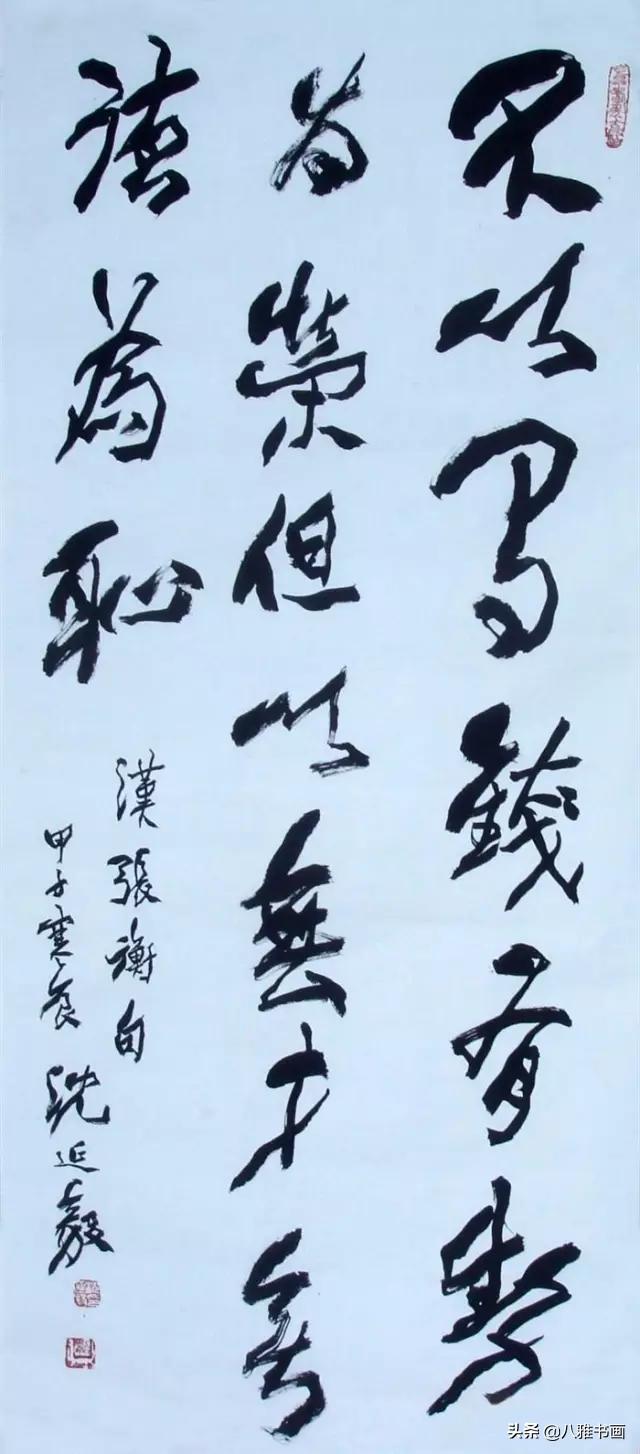 不以有錢有勢
为榮但以無才無
德為恥
漢張衡句
甲子寒食 沈延毅
头条 @八雅书画